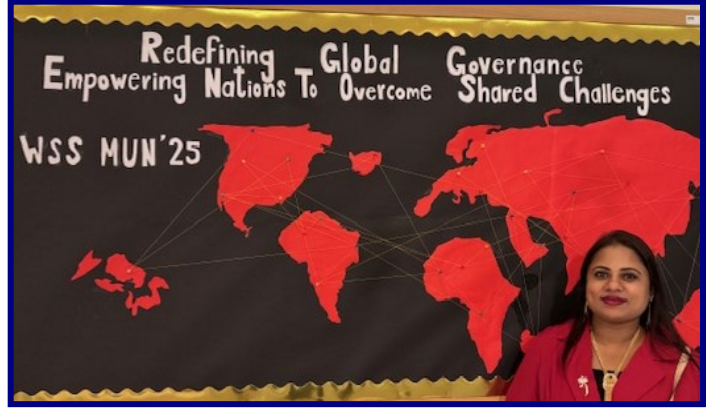 Redefining Global Governance
Empowering Nations To Overcome Shared Challenges
WSS MUN'25